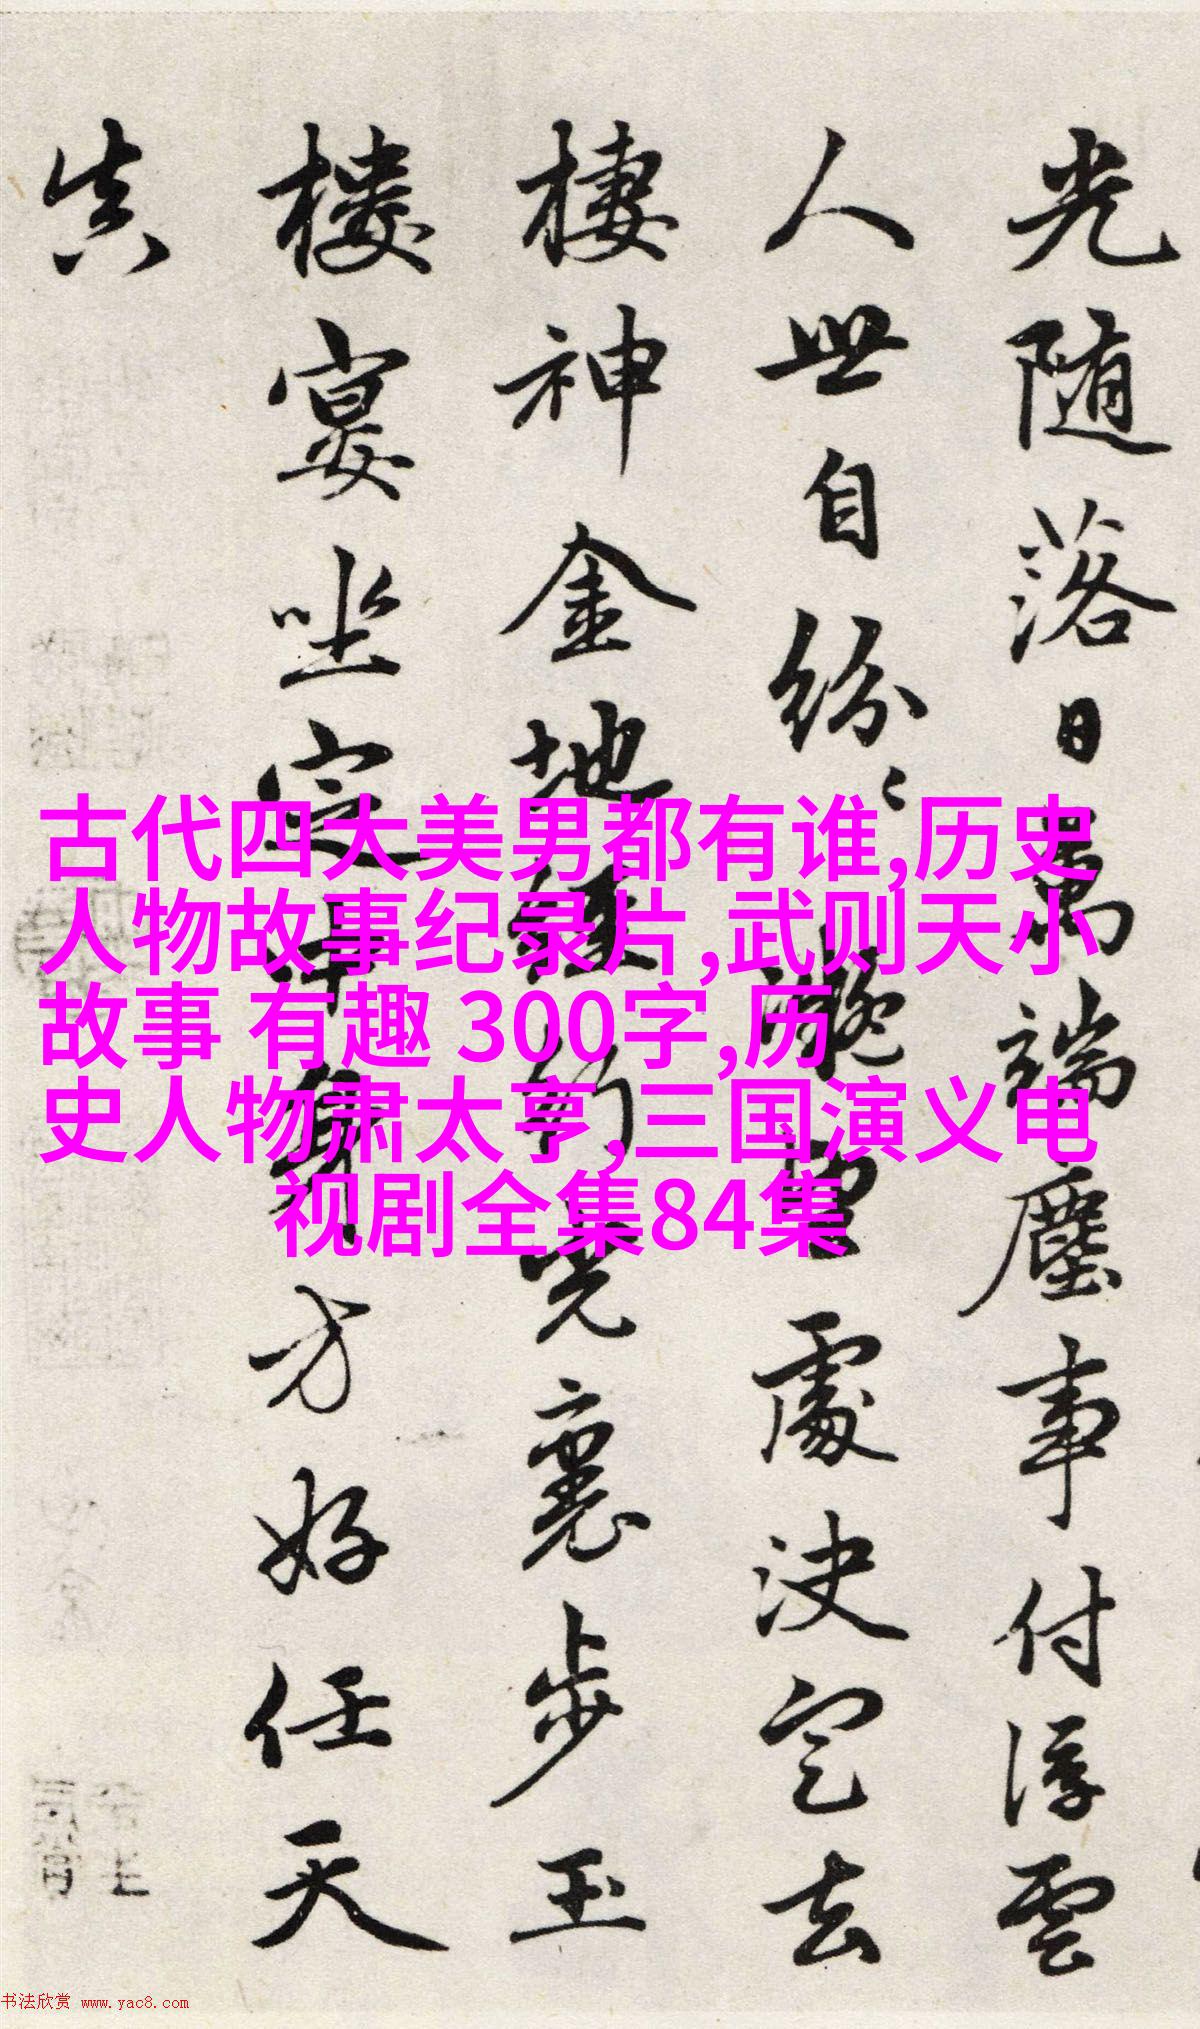 光随落日萬端塵事付浮雲
人世自紛〻處決定去
棲神金地裏步玉
樓宴坐定中身方好任天
真
古代四大美男都有谁,历史
人物故事纪录片,武则天小
故事 有趣 300字,历
史人物肃太亨,三国演义电
视剧全集84集
书法欣赏 www.yac8.com